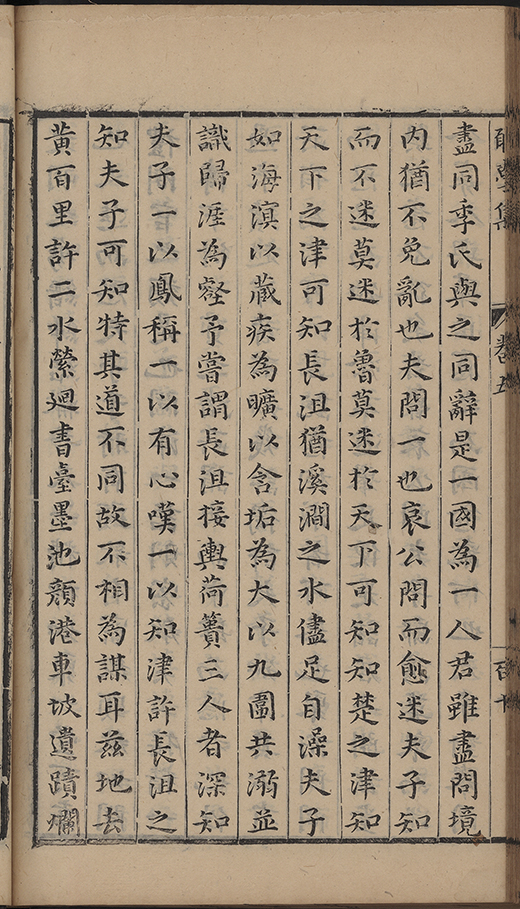 盡同季氏與之同辭是一國為一人君雖盡問境
內猶不免亂也夫問一也哀公問而愈迷夫子知
而不迷莫迷於魯莫迷於天下可知知楚之津知
天下之津可知長沮猶溪澗之水儘足自澡夫子
如海溟以藏疾為曠以含垢為大以九圍共溺並
識歸涯為壑予嘗謂長沮接輿荷蕢三人者深知
夫子一以鳳稱一以有心嘆一以知津許長沮之
知夫子可知特其道不同故不相為謀耳茲地去
黃百里許二水縈廻書臺墨池顏港車坡遺蹟爛
集 卷五